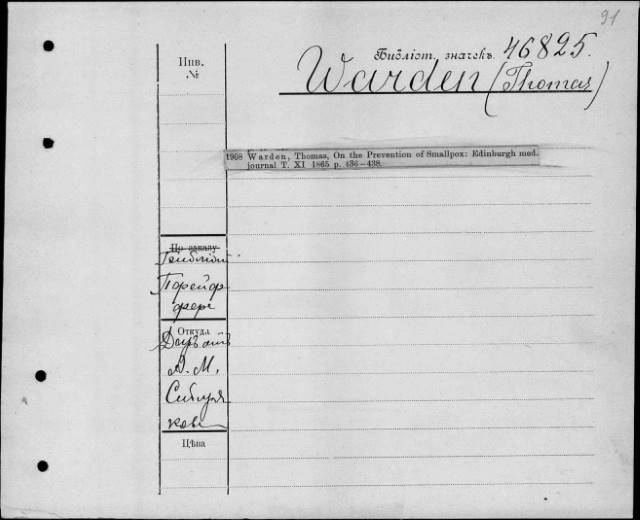 91
Библіот. значекъ 46825.
Warden (Thomas)
Инв.
№
1908 Warden, Thomas, On the Prevention of Smallpox: Edinburgh med.
journal T. XI 1865 p. 436—438.
По заказу
Откуда
Даръ отъ
А. М.
Сибиря
кова
Цѣна